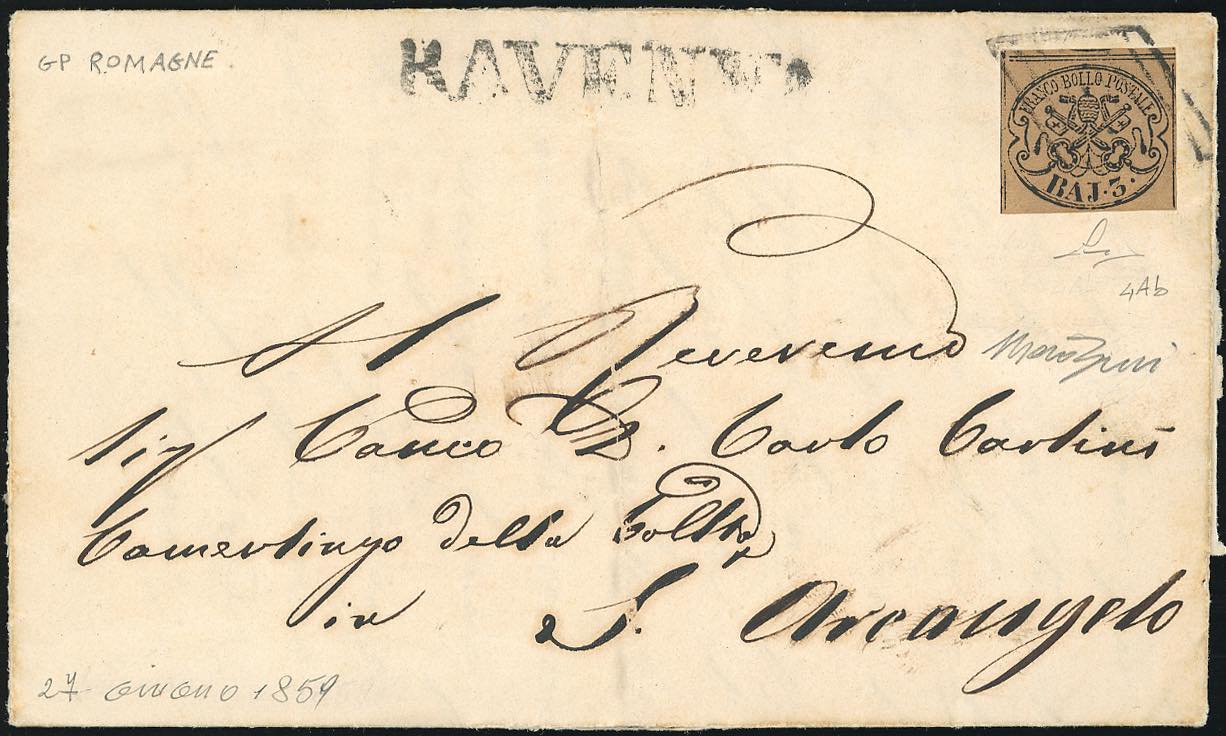 GP ROMAGNE.
RAVENNA
FRANCO BOLLO POSTALE
BAJ. 3.
4Ab
Al Reveremo
Sig Canco D. Carlo Cartini
Camerlingo della Colltta
in
S. Arcangelo
27 GIUGNO 1859